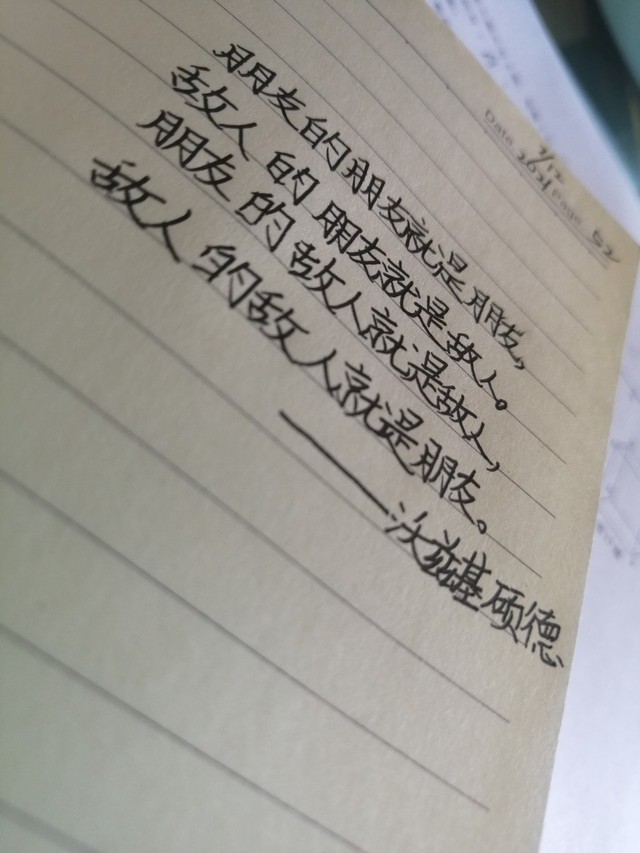 Date 7/12
2021 page 52
朋友的朋友就是朋友,
敌人的朋友就是敌人。
朋友的敌人就是敌人,
敌人的敌人就是朋友。
——沃兹基硕德